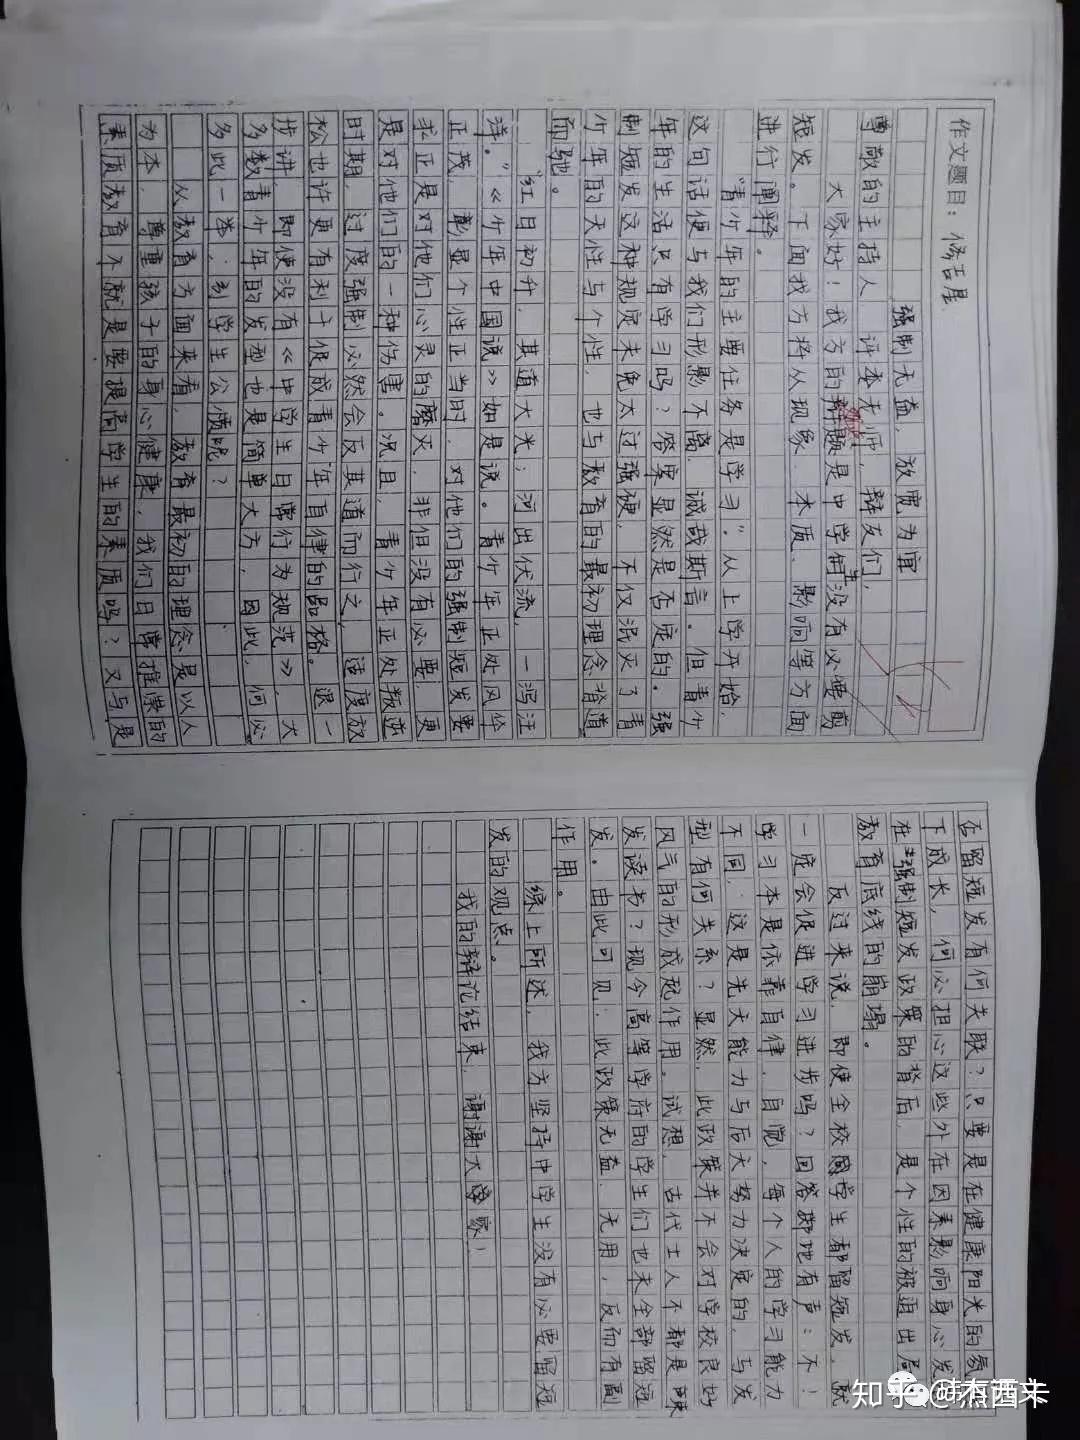 作文题目：修吾星
强制无益，放宽为宜
尊敬的主持人、评本无师，辩友们，
大家好！我方的辩题是中学生没有必要剪
短发。下面我方将从现象、本质、影响等方面
进行阐释。
“青少年的主要任务是学习”，从上学开始，
这句话便与我们形影不离，诚哉斯言。但青少
年的生活只有学习吗？答案显然是否定的。强
制短发这种规定未免太过强硬，不仅泯灭了青
少年的天性与个性，也与教育的最初理念背道
而驰。
“红日初升，其道大光；河出伏流，一泻汪
洋。”《少年中国说》如是说。青少年正处风华
正茂，彰显个性正当时，对他们的强制短发要
求正是对他们心灵的磨灭，非但没有必要，更
是对他们的一种伤害。况且，青少年正处叛逆
时期，过度强制必然会反其道而行之，适度放
松也许更有利于促成青少年自律的品格。退一
步讲，即使没有《中学生日常行为规范》，大
多数青少年的发型也是简单大方，因此，何必
多此一举，引学生公愤呢？
从教育方面来看，教育最初的理念是以人
为本，尊重孩子的身心健康，我们日常推崇的
素质教育不就是要提高学生的素质吗？又与是
否留短发有何关联？只要是在健康阳光的氛
下成长，何必担心这些外在因素影响身心发
在强制短发政策的背后，是个性的被迫出局
教育底线的崩塌。
反过来说，即使全校同学生都留短发，就
一定会促进学习进步吗？回答掷地有声：不！
学习本是依靠自律，自觉，每个人的学习能力
不同，这是先天能力与后天努力决定的，与发
型有何关系？显然，此政策并不会对学校良好
风气的形成起作用。试想，古代士人不都是束
发读书？现今高等学府的学生们也未全部留短
发。由此可见，此政策无益、无用，反而有副
作用。
综上所述，我方坚持中学生没有必要留短
发的观点。
我的辩论结束，谢谢大家！
知乎 @杰西卡